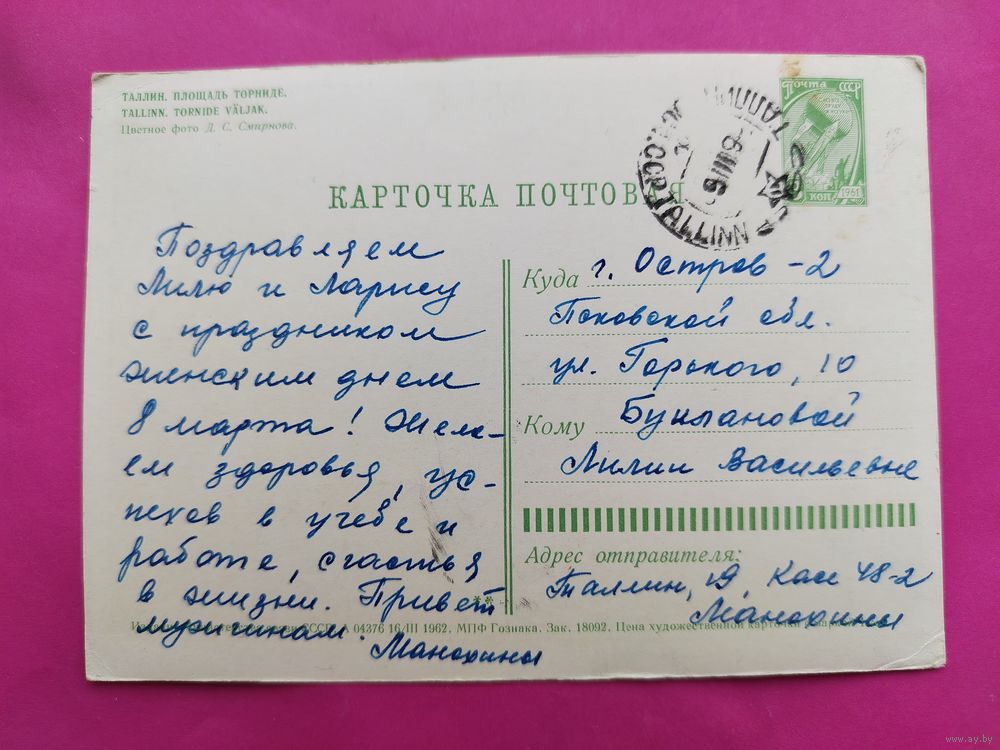 ТАЛЛИН. ПЛОЩАДЬ ТОРНИДЕ.
TALLINN. TORNIDE VÄLJAK.
Цветное фото Д. С. Смирнова.
ПОЧТА СССР
КОП
1961
ТАЛЛИН
TALLINN
КАРТОЧКА ПОЧТОВАЯ
Поздравляем
Лилю и Ларису
с праздником
женским днем
8 марта! Жела-
ем здоровья, ус-
пехов в учебе и
работе, счастья
в жизни. Привет
мужчинам.
Манохины
Куда г. Остров-2
Псковской обл.
ул. Горького, 10
Кому
Лилии Васильевне
Адрес отправителя:
Таллин, 19, 48-2
Манохины
А 04376 16/III 1962. МПФ Гознака. Зак. 18092. Цена художественной
www.ay.by